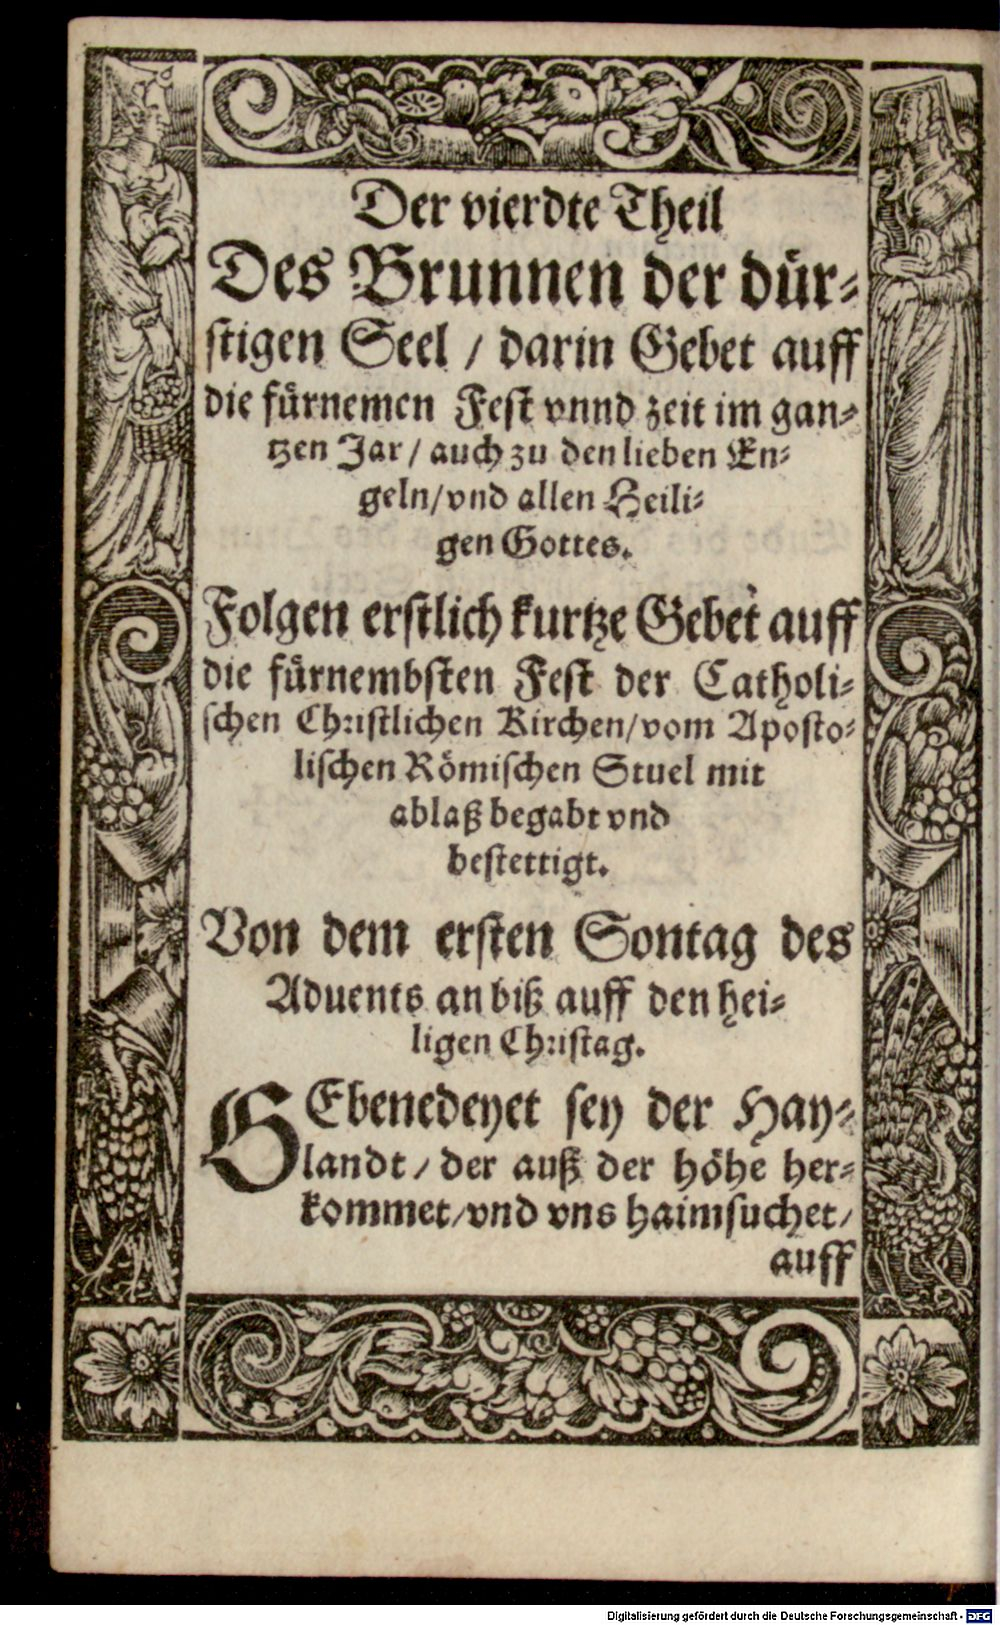 Der vierdte Theil
Des Brunnen der dür⸗
stigen Seel / darin Gebet auff
die fürnemen Fest vnnd zeit im gan⸗
tzen Jar / auch zu den lieben En⸗
geln / vnd allen Heili⸗
gen Gottes.
Folgen erstlich kurtze Gebet auff
die fürnembsten Fest der Catholi⸗
schen Christlichen Kirchen / vom Aposto⸗
lischen Römischen Stuel mit
ablaß begabt vnd
bestettigt.
Von dem ersten Sontag des
Aduents an biß auff den hei⸗
ligen Christag.
GEbenedeyet sey der Hay⸗
landt / der auß der höhe her⸗
kommet / vnd vns haimsuchet /
auff
Digitalisierung gefördert durch die Deutsche Forschungsgemeinschaft - DFG